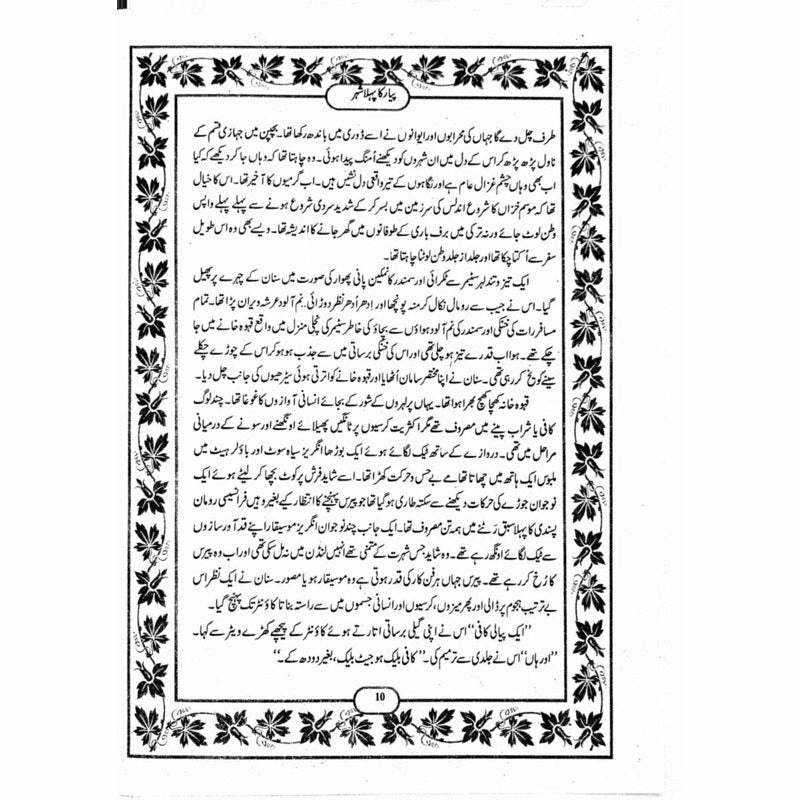 پیار کا پہلا شہر
طرف چل دے گا جہاں کی محرابوں اور ایوانوں نے اسے ڈوری میں باندھ رکھا تھا۔ بچپن میں جہازی قسم کے
ناول پڑھ پڑھ کر اس کے دل میں ان شہروں کو دیکھنے اُمنگ پیدا ہوئی۔ وہ چاہتا تھا کہ وہاں جا کر دیکھے کہ کیا
اب بھی وہاں چشمِ غزال عام ہے اور نگاہوں کے تیر واقعی دل نشیں ہیں۔ اب گرمیوں کا آخیر تھا۔ اس کا خیال
تھا کہ موسم خزاں کا شروع اندلس کی سرزمین میں بسر کر کے شدید سردی شروع ہونے سے پہلے پہلے واپس
وطن لوٹ جائے ورنہ ترکی میں برف باری کے طوفانوں میں گھر جانے کا اندیشہ تھا۔ ویسے بھی وہ اس طویل
سفر سے اُکتا چکا تھا اور جلد از جلد وطن لوٹنا چاہتا تھا۔
ایک تیز و تند لہر سٹیمر سے ٹکرائی اور سمندر کا نمکین پانی پھوار کی صورت میں سنان کے چہرے پر پھیل
گیا۔ اس نے جیب سے رومال نکال کر منہ پونچھا اور اِدھر اُدھر نظر دوڑائی۔ نم آلود عرشہ ویران پڑا تھا۔ تمام
مسافر رات کی خنکی اور سمندر کی نم آلود ہواؤں سے بچاؤ کی خاطر سٹیمر کی نچلی منزل میں واقع قہوہ خانے میں جا
چکے تھے۔ ہوا اب قدرے تیز ہو چلی تھی اور اس کی خنکی برساتی میں سے جذب ہو ہو کر اس کے چوڑے چکلے
سینے کو یخ کر رہی تھی۔ سنان نے اپنا مختصر سامان اُٹھایا اور قہوہ خانے کو اترتی ہوئی سیڑھیوں کی جانب چل دیا۔
قہوہ خانہ کھچا کھچ بھرا ہوا تھا۔ یہاں پر لہروں کے شور کے بجائے انسانی آوازوں کا غوغا تھا۔ چند لوگ
کافی یا شراب پینے میں مصروف تھے مگر اکثریت کرسیوں پر ٹانگیں پھیلائے اونگھنے اور سونے کے درمیانی
مراحل میں تھی۔ دروازے کے ساتھ ٹیک لگائے ہوئے ایک بوڑھا انگریز سیاہ سوٹ اور باؤلر ہیٹ میں
ملبوس ایک ہاتھ میں چھاتا تھامے بے حس و حرکت کھڑا تھا۔ اسے شاید فرش پر کوٹ بچھا کر لیٹے ہوئے ایک
نوجوان جوڑے کی حرکات دیکھنے سے سکتہ طاری ہو گیا تھا جو پیرس پہنچنے کا انتظار کیے بغیر وہیں فرانسیسی رومان
پسندی کا پہلا سبق رٹنے میں ہمہ تن مصروف تھا۔ ایک جانب چند نوجوان انگریز موسیقار اپنے قد آور سازوں
سے ٹیک لگائے اونگھ رہے تھے۔ وہ شاید جس شہرت کے متمنی تھے انہیں لنڈن میں نہ مل سکی تھی اور اب وہ پیرس
کا رُخ کر رہے تھے۔ پیرس جہاں ہر فن کار کی قدر ہوتی ہے وہ موسیقار ہو یا مصور۔ سنان نے ایک نظر اس
بے ترتیب ہجوم پر ڈالی اور پھر میزوں، کرسیوں اور انسانی جسموں میں سے راستہ بناتا کاؤنٹر تک پہنچ گیا۔
”ایک پیالی کافی“ اس نے اپنی گیلی برساتی اتارتے ہوئے کاؤنٹر کے پیچھے کھڑے ویٹر سے کہا۔
”اور ہاں“ اس نے جلدی سے ترمیم کی۔ ”کافی بلیک ہو جیٹ بلیک، بغیر دودھ کے۔“
10